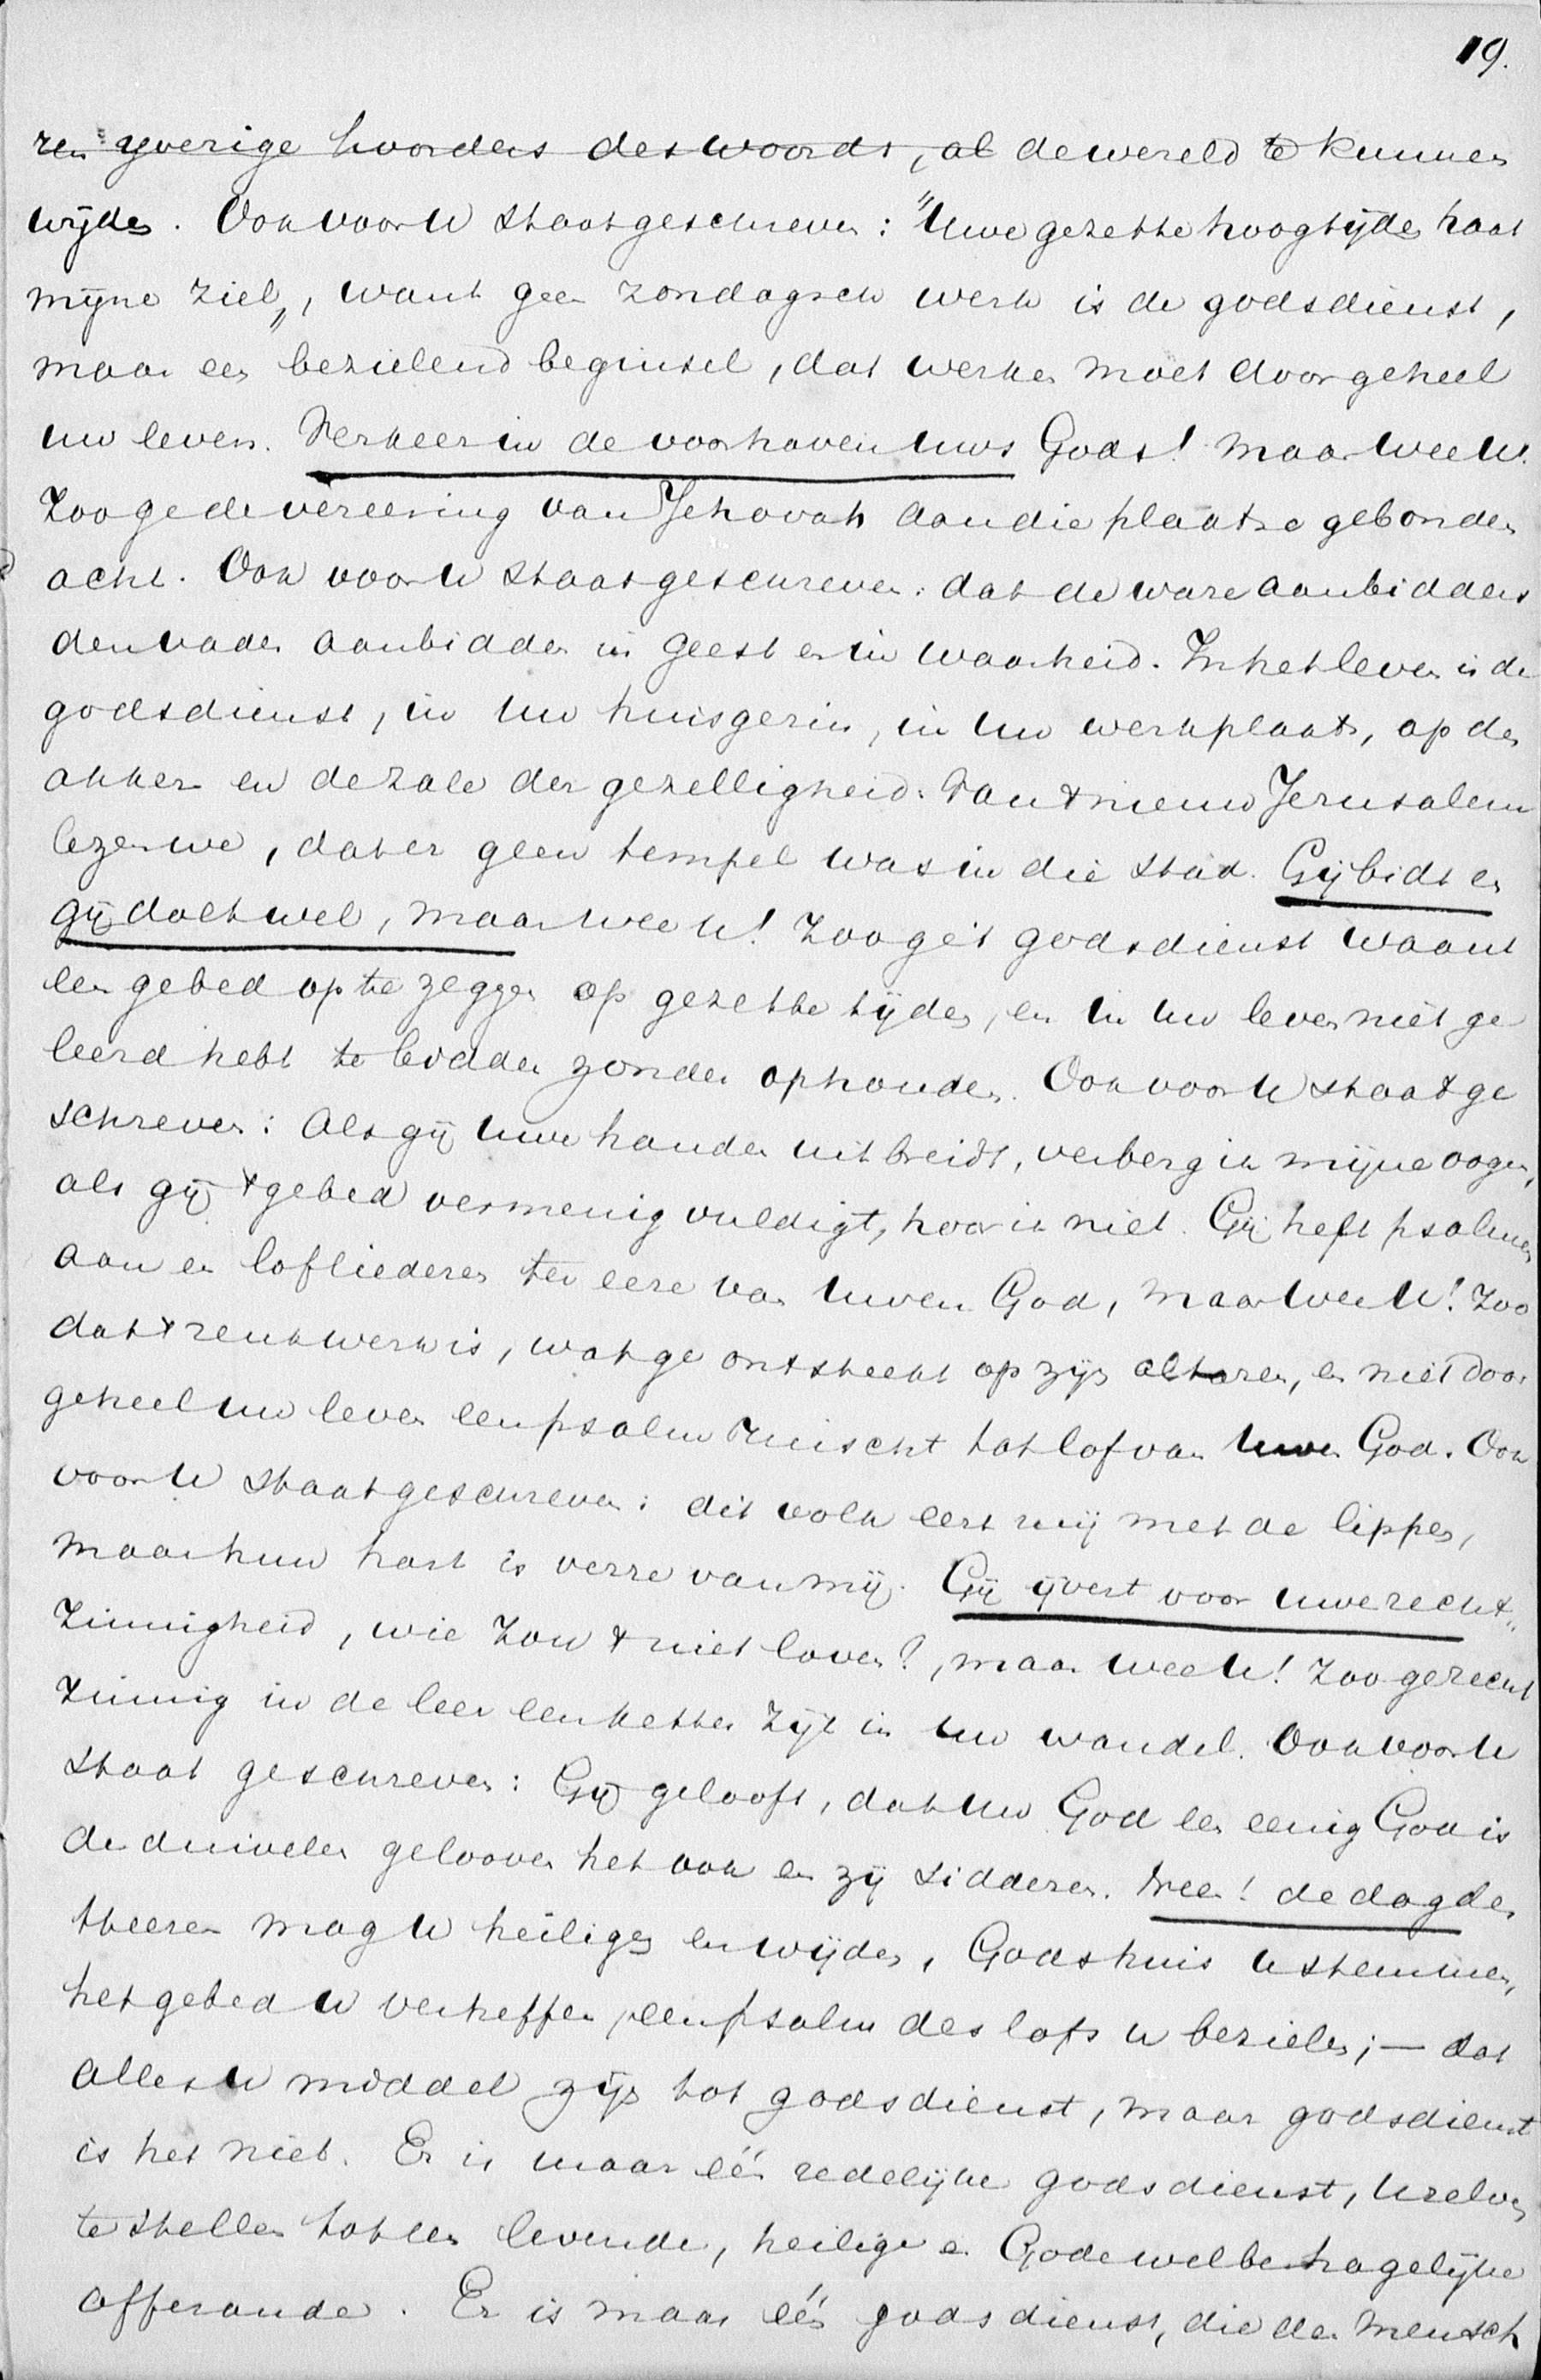 19.
ren ijverige hoorders des woords, al de wereld te kunnen
wijden. Ook voor U staat geschreven: "Uwe gezette hoogtijden haat
mijne ziel", want geen zondagsch werk is de godsdienst,
maar een bezielend beginsel, dat werken moet door geheel
uw leven. Verkeer in de voorhoven uws Gods! maar wee U!
Zoo ge de vereering van Jehovah aan die plaatse gebonden
acht. Ook voor U staat geschreven: dat de ware aanbidders
den vader aanbidden in geest en in waarheid. In het leven is de
godsdienst, in uw huisgezin, in uw werkplaats, op den
akker en de zale der gezelligheid. Van 't nieuw Jerusalem
lezen we, dat er geen tempel was in die stad. Gij bidt en
gij doet wel, maar wee U! Zoo ge 't godsdienst waant
een gebed op te zeggen op gezette tijden, en in uw leven niet ge
leerd hebt te bidden zonder ophouden. Ook voor U staat ge
schreven: Als gij uwe handen uitbreidt, verberg ik mijne oogen,
als gij 't gebed vermenigvuldigt, hoor ik niet. Gij heft psalmen
aan en lofliederen ter eere van uwen God, maar wee U! Zoo
dat 't reukwerk is, wat ge ontsteekt op zijn altaren, en niet door
geheel uw leven een psalm ruischt tot lof van uwen God. Ook
voor U staat geschreven: dit volk eert mij met de lippen,
maar hun hart is verre van mij. Gij ijvert voor uwe recht-
zinnigheid, wie zou 't niet loven?, maar wee U! Zoo ge recht
zinnig in de leer een ketter zijt in uw wandel. Ook voor U
staat geschreven: Gij gelooft, dat uw God een eenig God is
de duivelen gelooven het ook en zij sidderen. Neen! de dag des
Heeren mag U heiligen en wijden, Godshuis U stemmen,
het gebed U verheffen, een psalm des lofs U bezielen; — dat
alles U middel zijn tot godsdienst, maar godsdienst
is het niet. Er is maar één redelijke godsdienst, Uzelven
te stellen tot een levende, heilige en Gode welbehagelijke
offerande. Er is maar één godsdienst, die den mensch